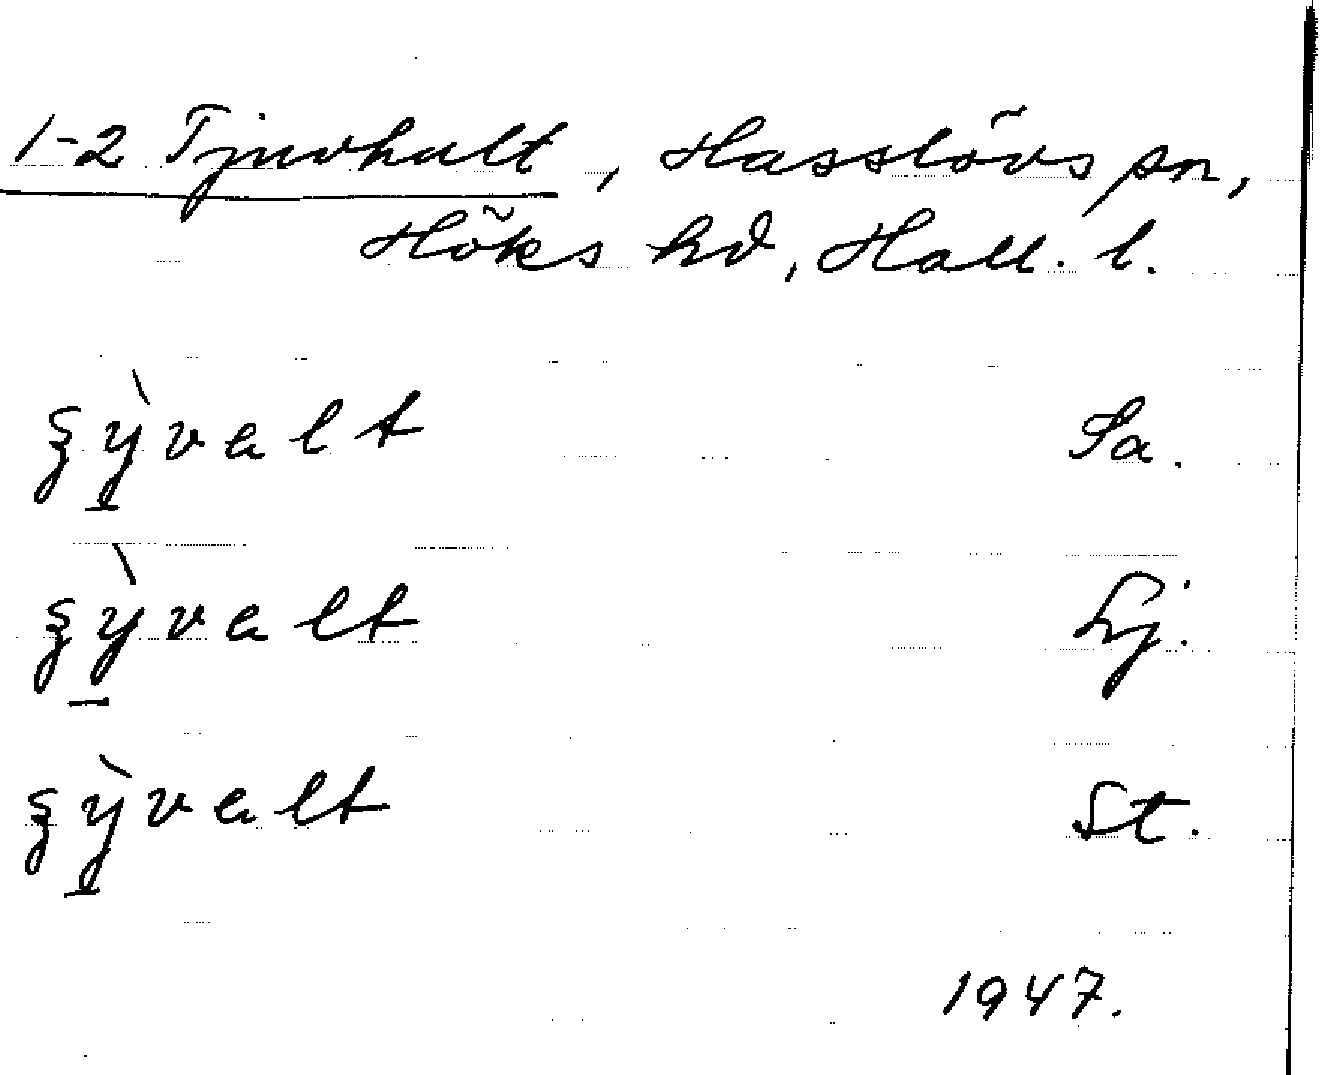 1-2 Tjuvhult, Hasslövs sn,
Höks hd, Hall. l.
ȿỳ̱valt Sa.
ȿỳ̱valt Lj.
ȿỳ̱valt St.
1947.